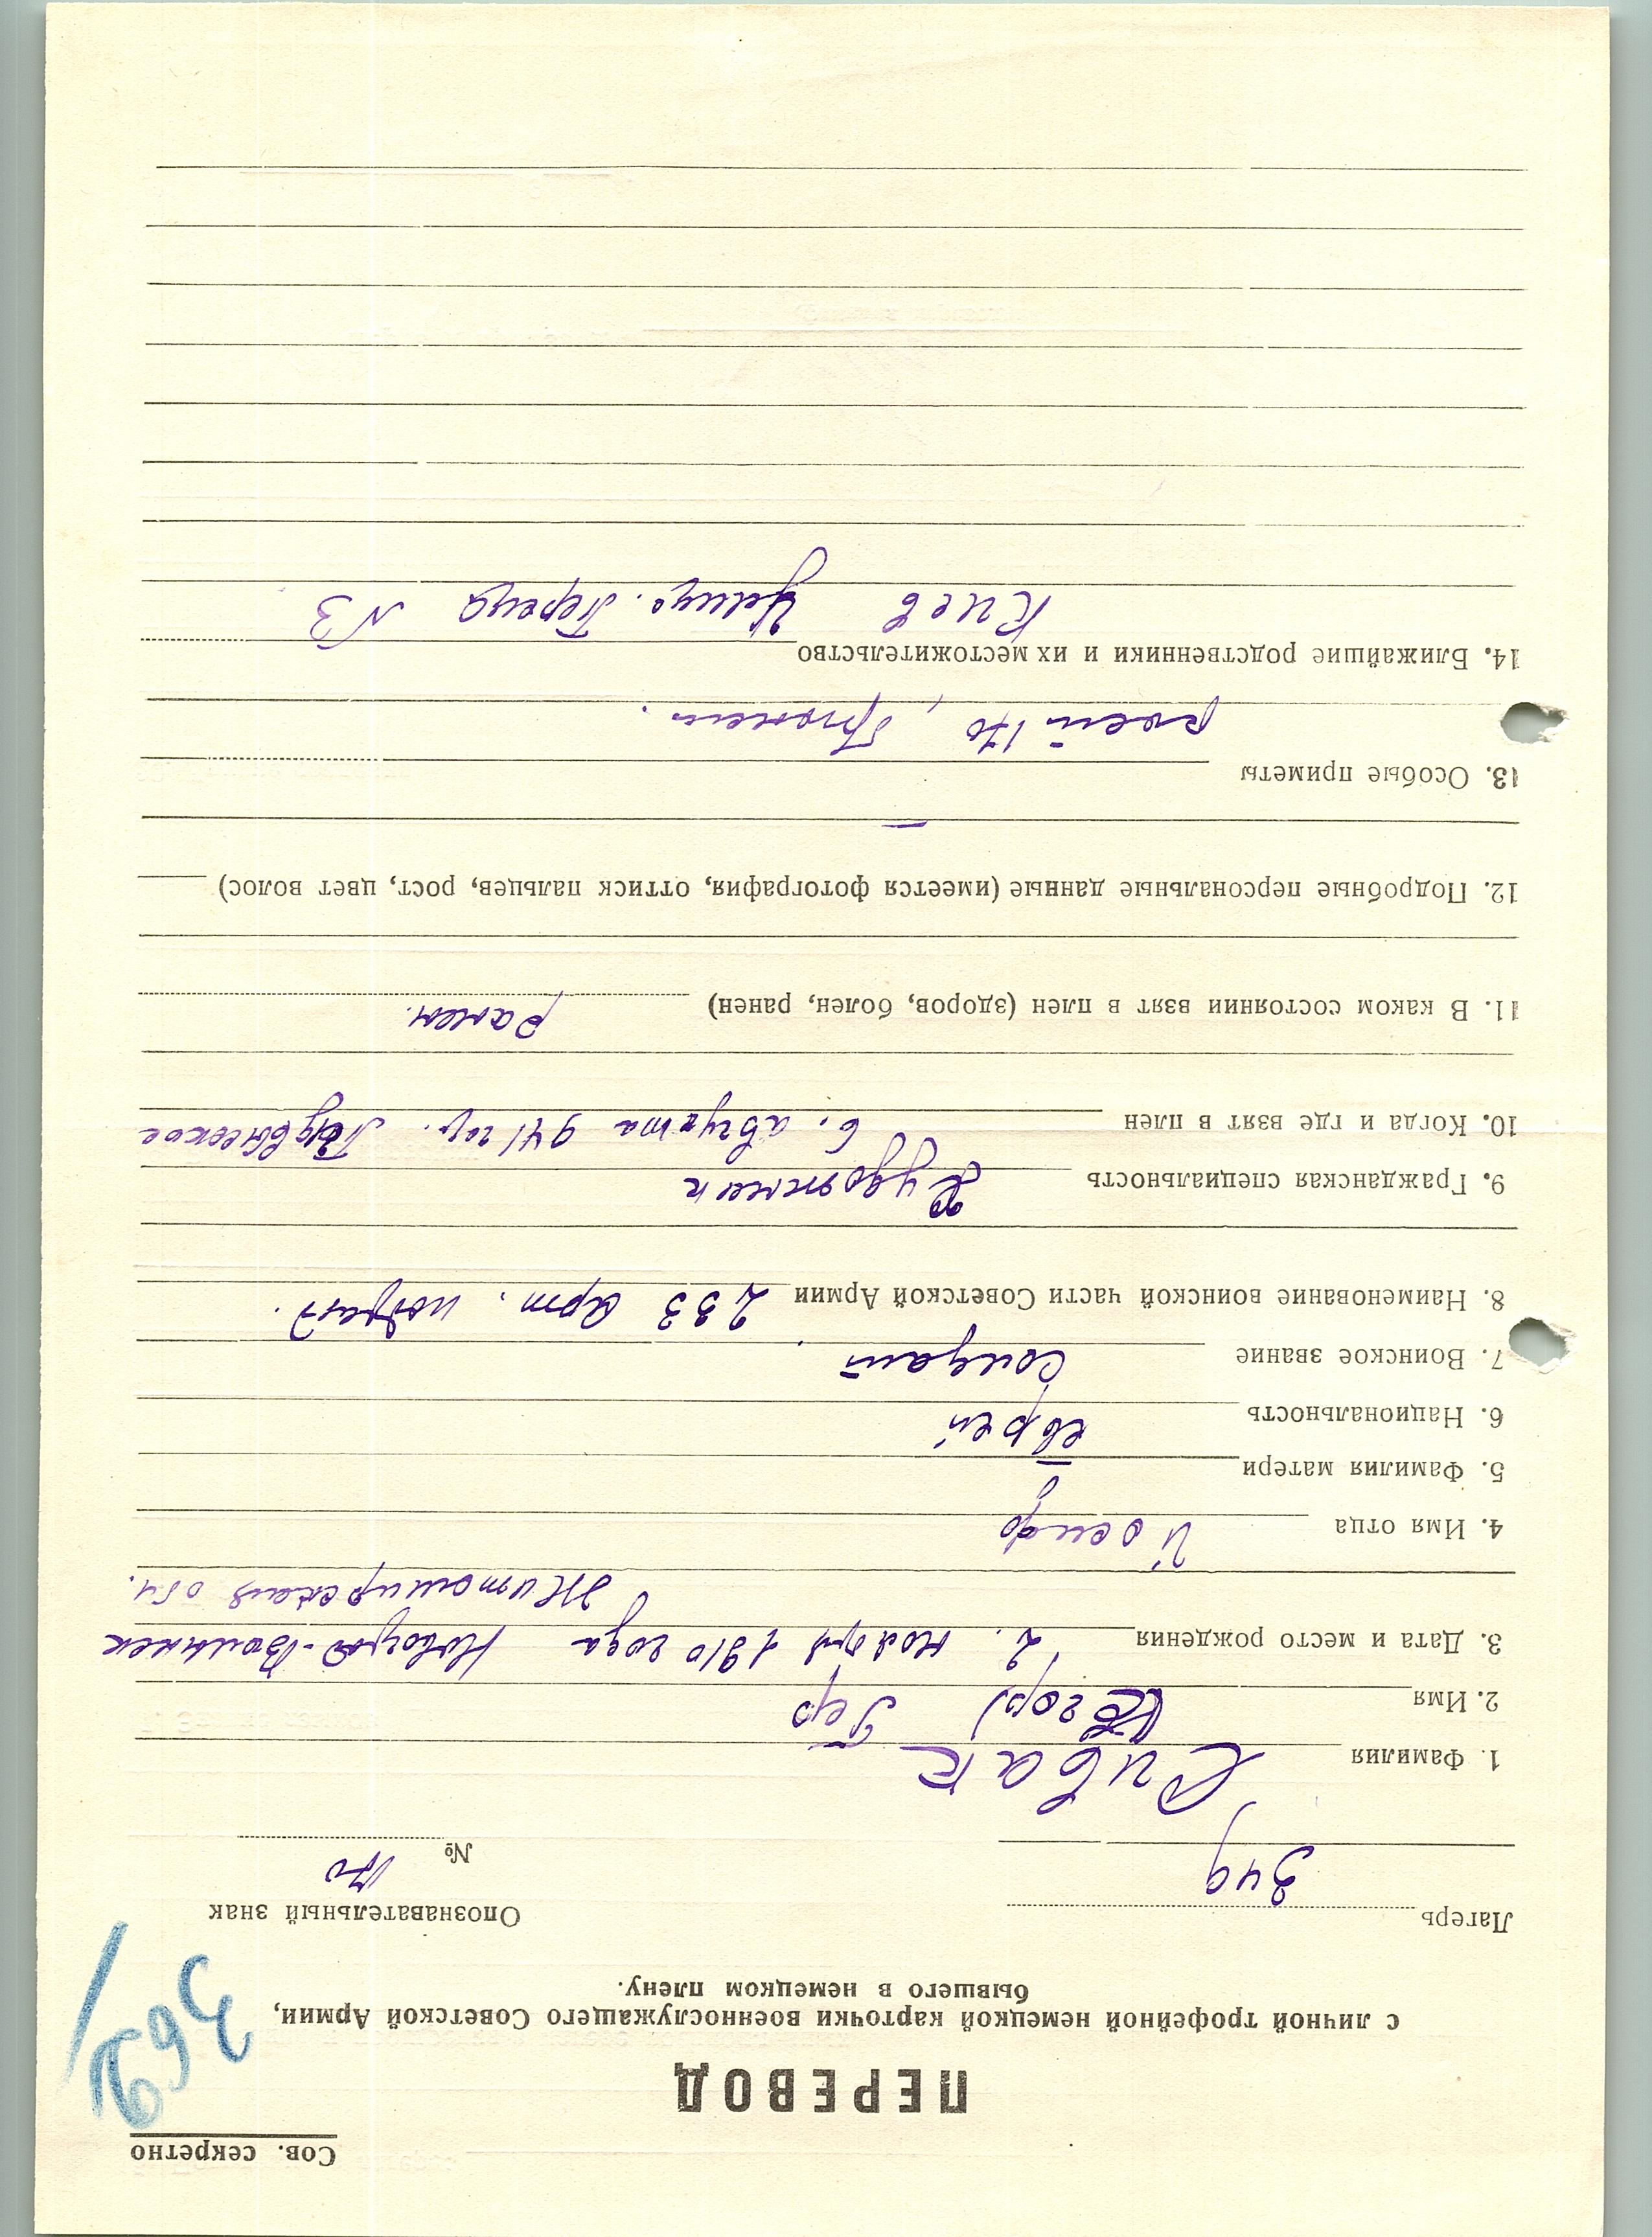 Сов. секретно
369
ПЕРЕВОД
с личной трофейной немецкой карточки военнослужащего Советской Армии,
бывшего в немецком плену.
Лагерь
Опознавательный знак
№ 170
1. Фамилия Сивак
2. Имя
3. Дата и место рождения 2. ноября 1910 года Новоград-Волынск
Житомирская обл.
4. Имя отца Иосиф
5. Фамилия матери —
6. Национальность еврей
7. Воинское звание Солдат
8. Наименование воинской части Советской Армии 233 арт.
9. Гражданская специальность Художник
10. Когда и где взят в плен 6. августа 941 гор. Подвысокое
11. В каком состоянии взят в плен (здоров, болен, ранен) ранен.
12. Подробные персональные данные (имеется фотография, оттиск пальцев, рост, цвет волос)
—
13. Особые приметы
рост 170, брюнет.
14. Ближайшие родственники и их местожительство
Киев Улица. Переца № 3